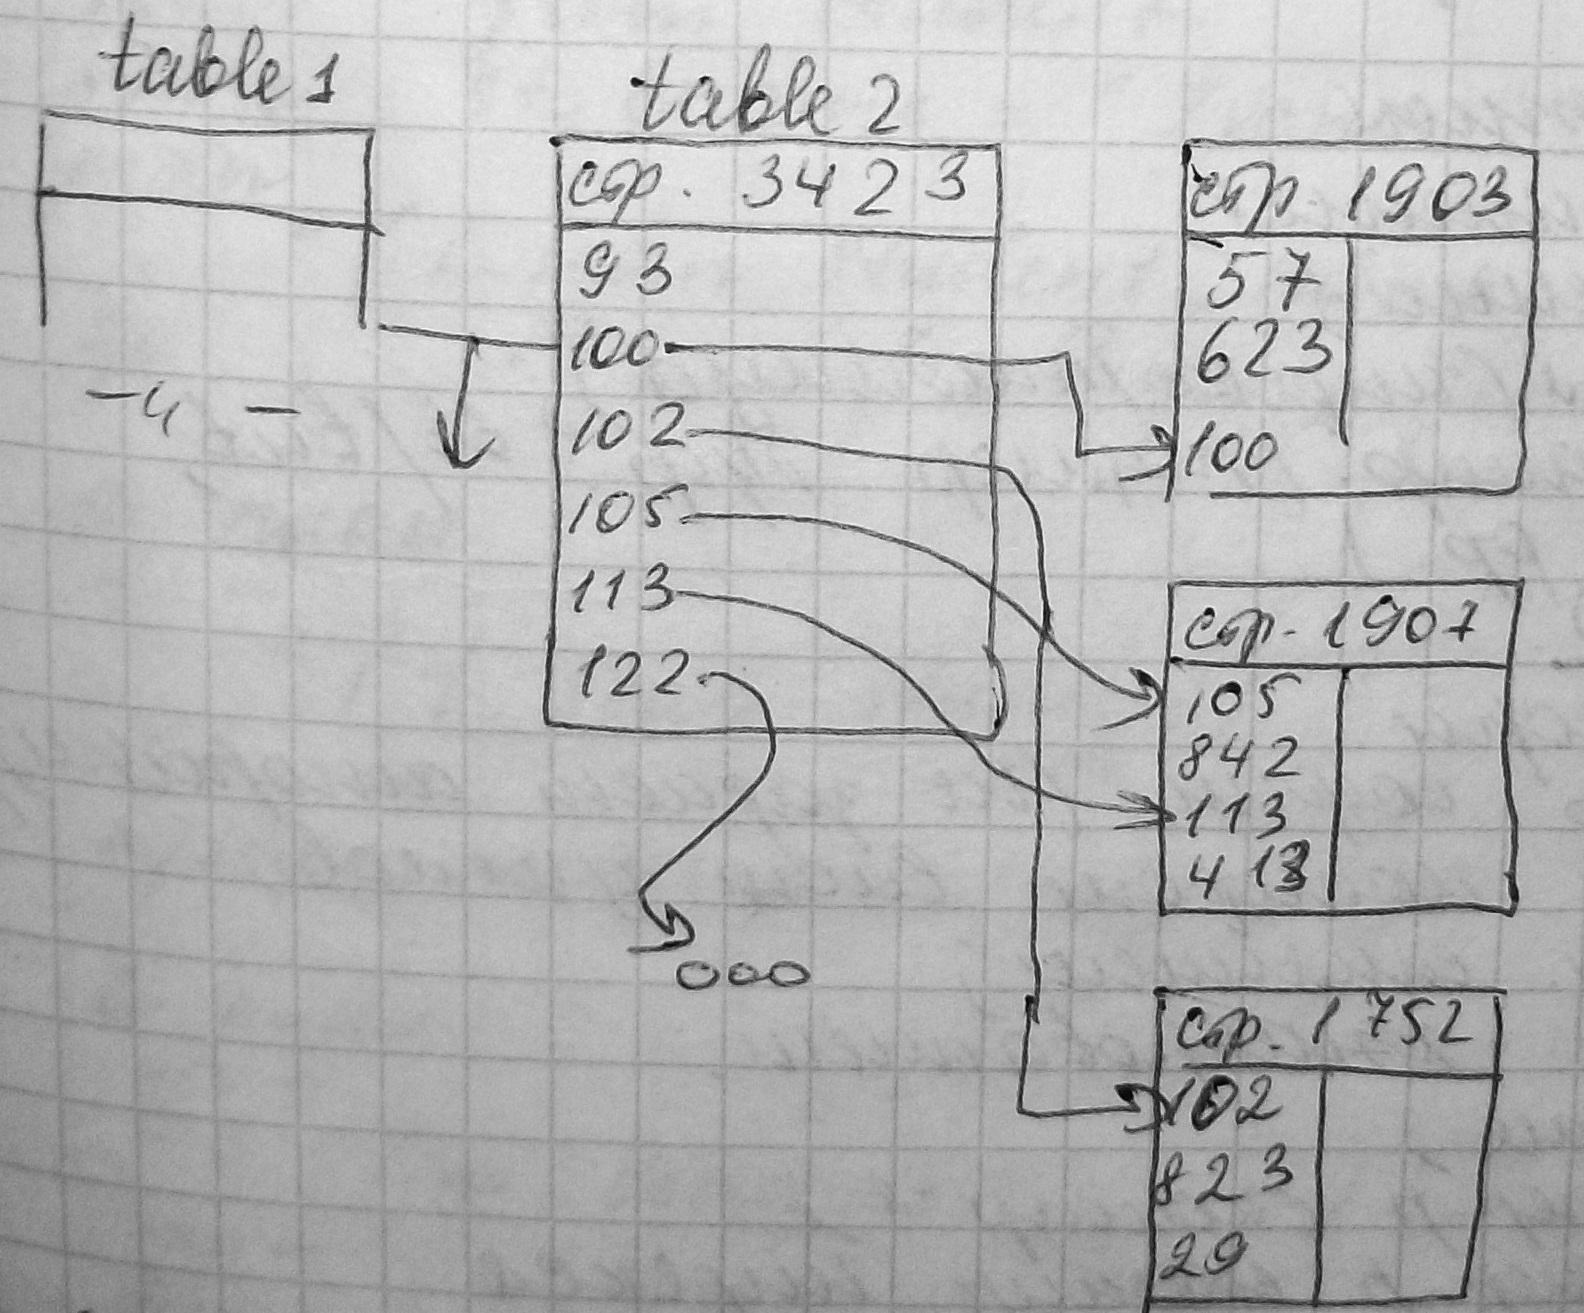 table 1
– ч –
table 2
стр. 3423
93
100
102
105
113
122
000
стр. 1903
57
623
100
стр. 1907
105
842
113
413
стр. 1752
102
823
29